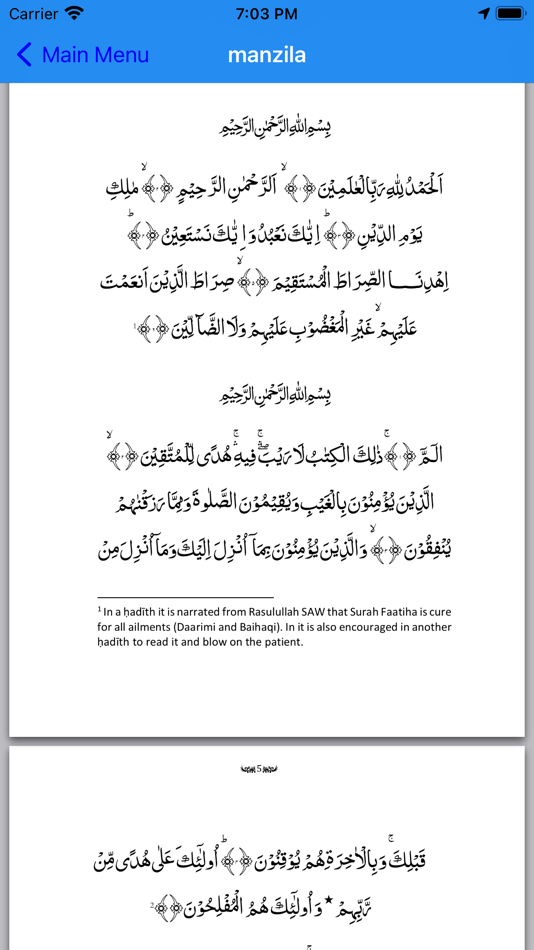 Carrier 7:03 PM
Main Menu manzila
بِسْمِ اللهِ الرَّحْمٰنِ الرَّحِيْمِ
اَلْحَمْدُ لِلّٰهِ رَبِّ الْعٰلَمِيْنَ ﴿﴾ۙ اَلرَّحْمٰنِ الرَّحِيْمِ ﴿﴾ۙ مٰلِكِ
يَوْمِ الدِّيْنِ ﴿﴾ؕ اِيَّاكَ نَعْبُدُ وَاِيَّاكَ نَسْتَعِيْنُ ﴿﴾ؕ
اِهْدِنَــــا الصِّرَاطَ الْمُسْتَقِيْمَ ﴿﴾ۙ صِرَاطَ الَّذِيْنَ اَنْعَمْتَ
عَلَيْهِمْ ۙ غَيْرِ الْمَغْضُوْبِ عَلَيْهِمْ وَلَا الضَّآلِّيْنَ ﴿﴾ 1
بِسْمِ اللهِ الرَّحْمٰنِ الرَّحِيْمِ
الٓمّٓ ﴿﴾ۚ ذٰلِكَ الْكِتٰبُ لَا رَيْبَ ۛۖۚ فِيْهِ ۛۚ هُدًى لِّلْمُتَّقِيْنَ ﴿﴾ۙ
الَّذِيْنَ يُؤْمِنُوْنَ بِالْغَيْبِ وَيُقِيْمُوْنَ الصَّلٰوةَ وَمِمَّا رَزَقْنٰهُمْ
يُنْفِقُوْنَ ﴿﴾ۙ وَالَّذِيْنَ يُؤْمِنُوْنَ بِمَآ اُنْزِلَ اِلَيْكَ وَمَآ اُنْزِلَ مِنْ
1 In a ḥadīth it is narrated from Rasulullah SAW that Surah Faatiha is cure
for all ailments (Daarimi and Baihaqi). In it is also encouraged in another
ḥadīth to read it and blow on the patient.
5
قَبْلِكَ ۚ وَبِالْاٰخِرَةِ هُمْ يُوْقِنُوْنَ ﴿﴾ؕ اُولٰٓئِكَ عَلٰى هُدًى مِّنْ
رَّبِّهِمْ * وَاُولٰٓئِكَ هُمُ الْمُفْلِحُوْنَ ﴿﴾ 2